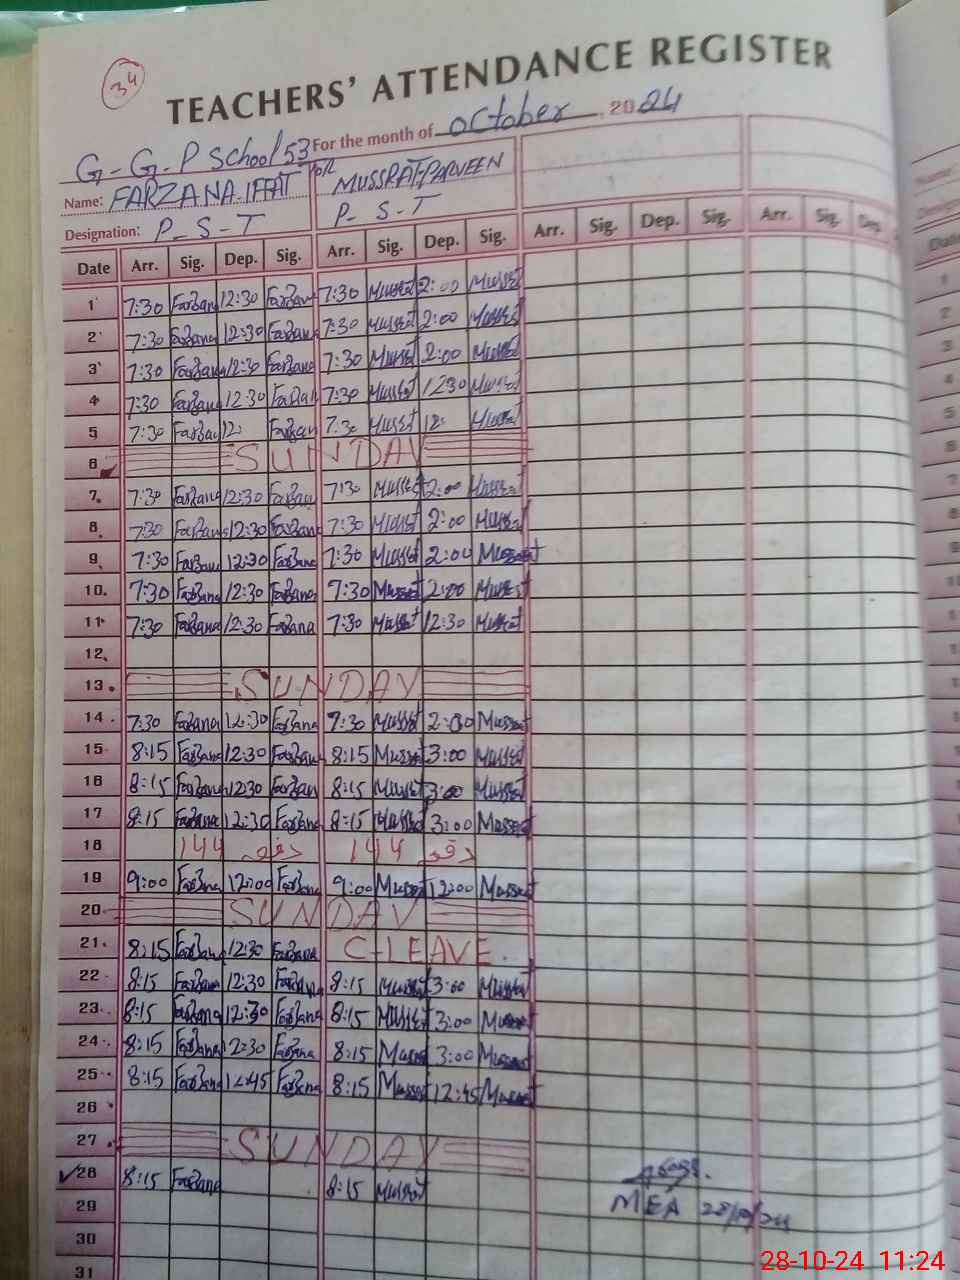 34
TEACHERS' ATTENDANCE REGISTER
G-G-P School 53 For the month of October, 2024
Name: FARZANA-IFFAT MUSSRAT-PARVEEN
Designation: P-S-T P-S-T
Date Arr. Sig. Dep. Sig. Arr. Sig. Dep. Sig. Arr. Sig. Dep. Sig. Arr. Sig. Dep.
1 7:30 Farzana 12:30 Farzana 7:30 Mussrat 2:00 Mussrat
2 7:30 Farzana 12:30 Farzana 7:30 Mussrat 2:00 Mussrat
3 7:30 Farzana 12:30 Farzana 7:30 Mussrat 2:00 Mussrat
4 7:30 Farzana 12:30 Farzana 7:30 Mussrat 1230 Mussrat
5 7:30 Farzana 12: Farzana 7:30 Mussrat 12: Mussrat
6 SUNDAY
7 7:30 Farzana 12:30 Farzana 7:30 Mussrat 2:00 Mussrat
8 7:30 Farzana 12:30 Farzana 7:30 Mussrat 2:00 Mussrat
9 7:30 Farzana 12:30 Farzana 7:30 Mussrat 2:00 Mussrat
10 7:30 Farzana 12:30 Farzana 7:30 Mussrat 2:00 Mussrat
11 7:30 Farzana 12:30 Farzana 7:30 Mussrat 12:30 Mussrat
12
13 SUNDAY
14 7:30 Farzana 12:30 Farzana 7:30 Mussrat 2:00 Mussrat
15 8:15 Farzana 12:30 Farzana 8:15 Mussrat 3:00 Mussrat
16 8:15 Farzana 12:30 Farzana 8:15 Mussrat 3:00 Mussrat
17 8:15 Farzana 12:30 Farzana 8:15 Mussrat 3:00 Mussrat
18 144 دفعہ 144 دفعہ
19 9:00 Farzana 12:00 Farzana 9:00 Mussrat 12:00 Mussrat
20 SUNDAY
21 8:15 Farzana 12:30 Farzana C-LEAVE.
22 8:15 Farzana 12:30 Farzana 8:15 Mussrat 3:00 Mussrat
23 8:15 Farzana 12:30 Farzana 8:15 Mussrat 3:00 Mussrat
24 8:15 Farzana 12:30 Farzana 8:15 Mussrat 3:00 Mussrat
25 8:15 Farzana 12:45 Farzana 8:15 Mussrat 12:45 Mussrat
26
27 SUNDAY
28 8:15 Farzana 8:15 Mussrat
29 MEA 28/10/24
30
31
28-10-24 11:24